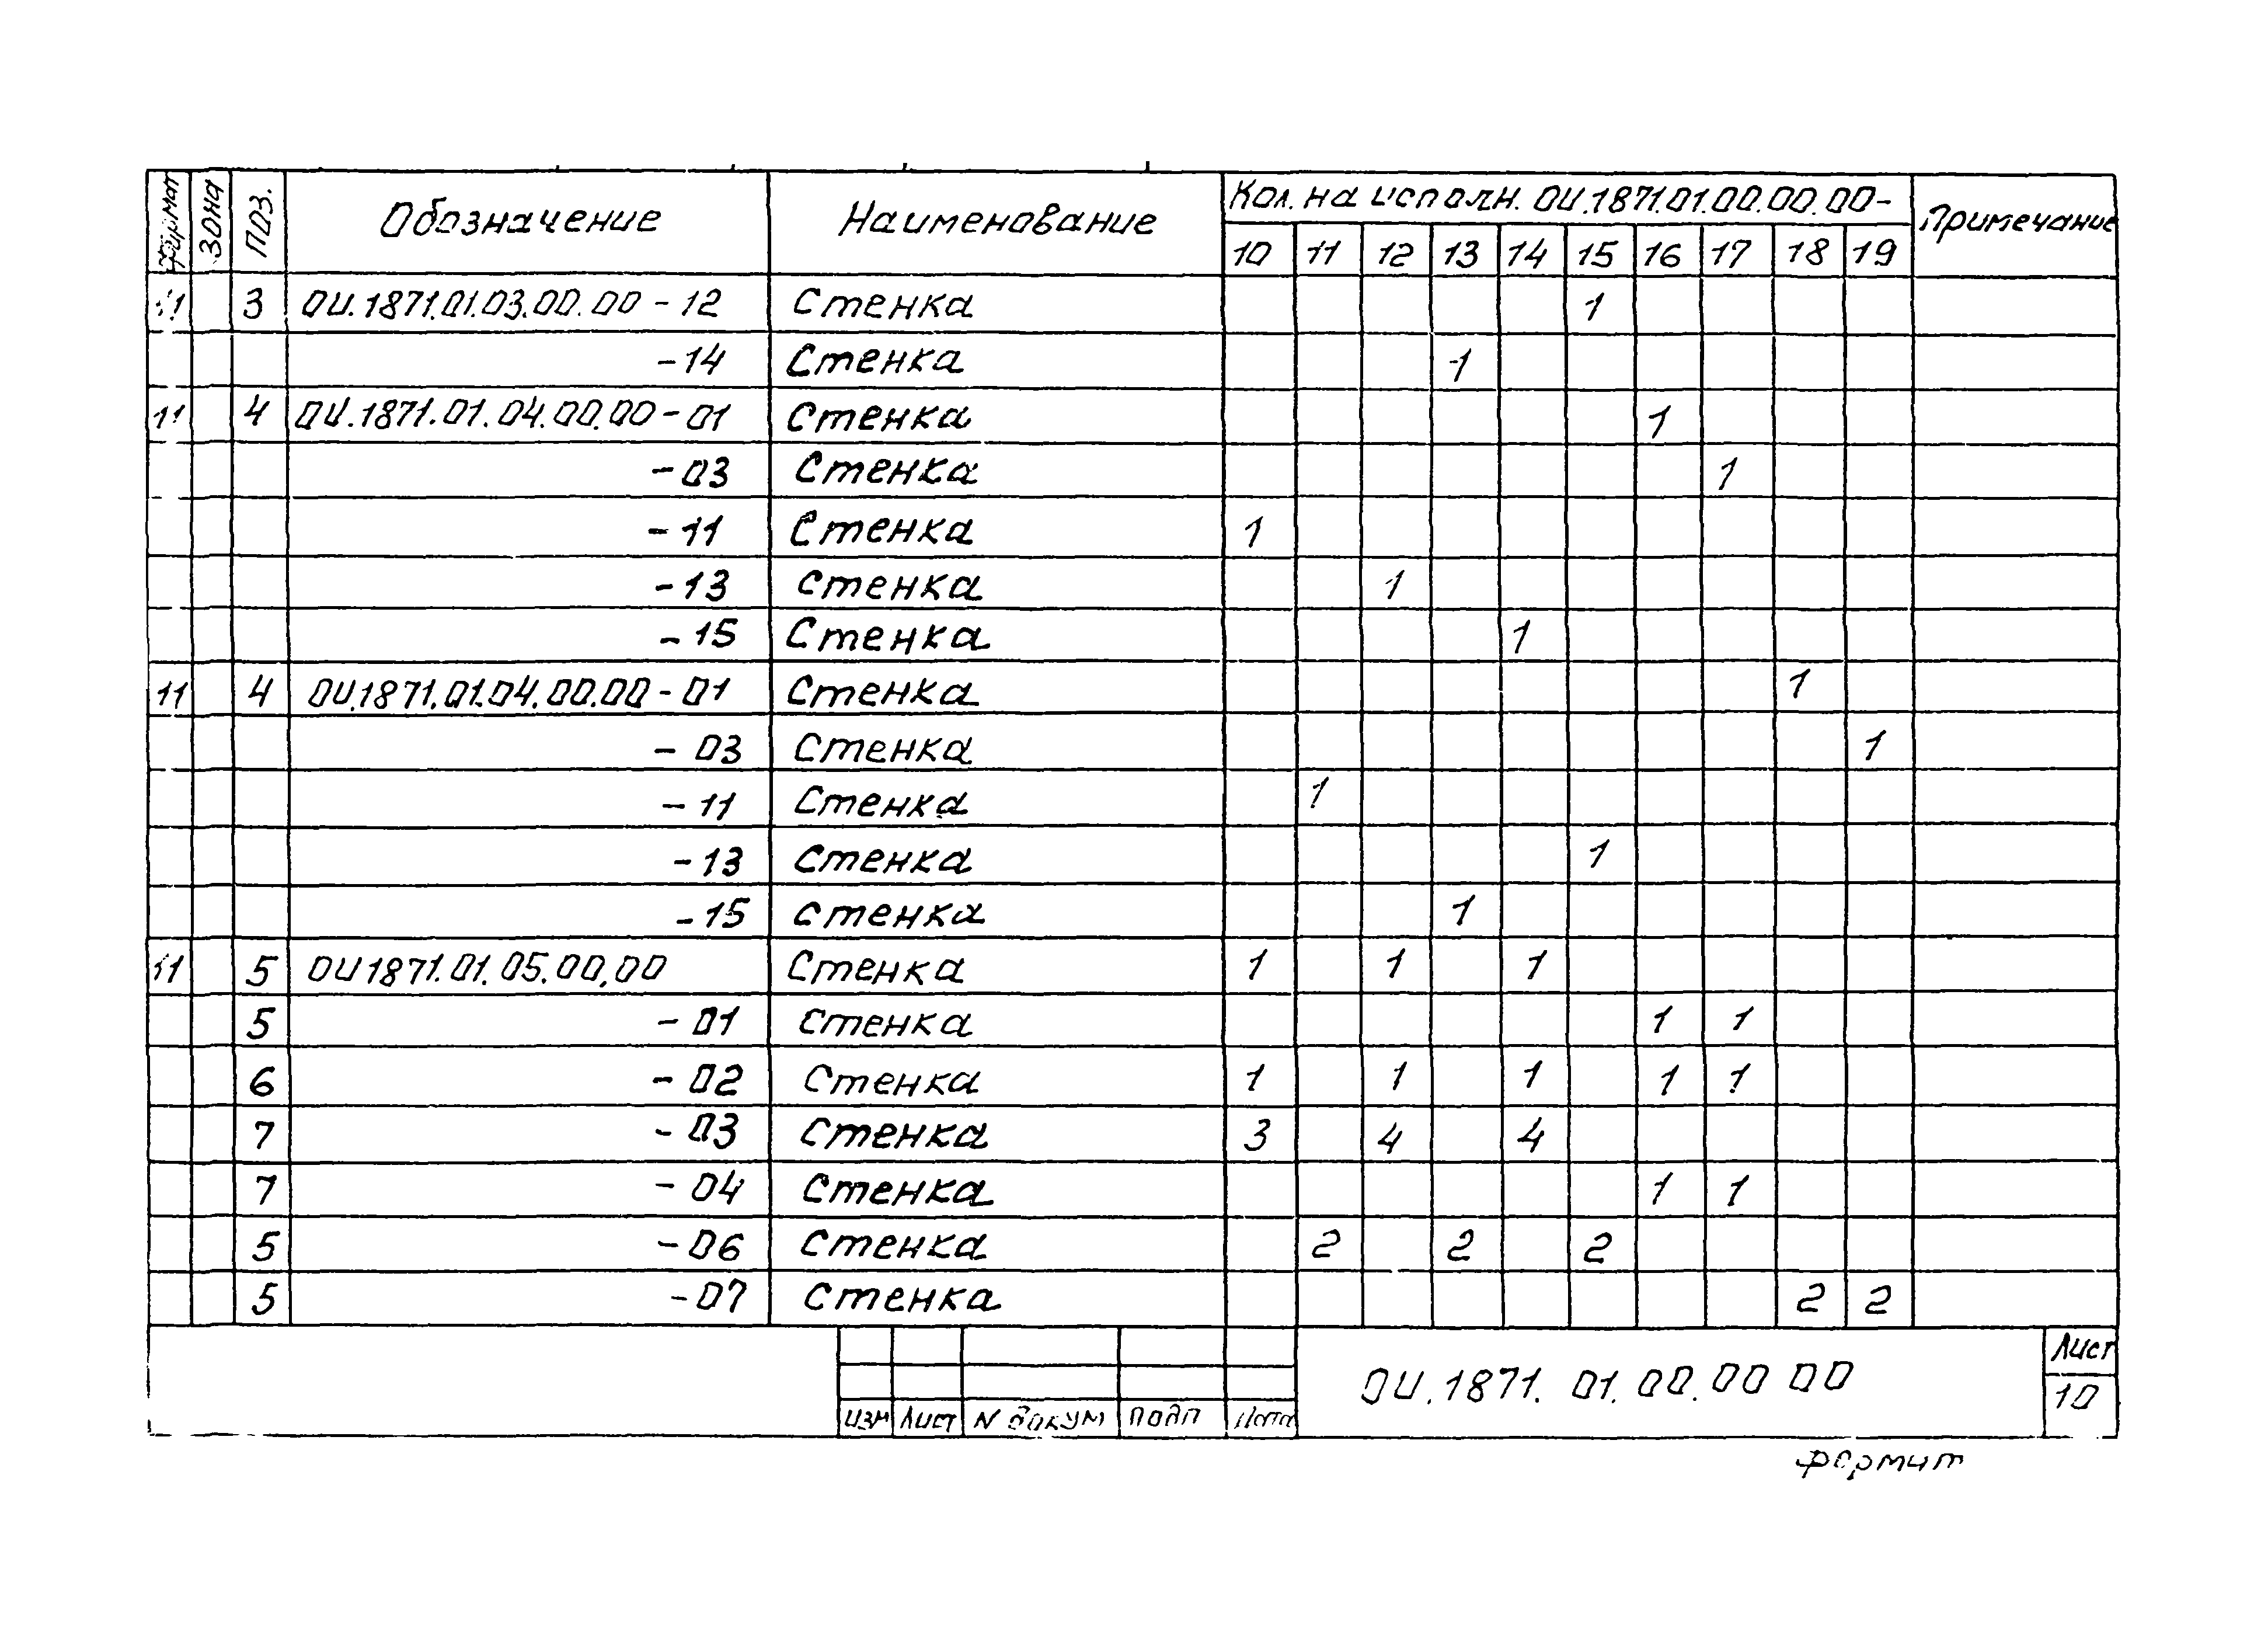 Формат Зона Поз. Обозначение Наименование Кол. на исполн. ОИ.1871.01.00.00.00- Примечание
10 11 12 13 14 15 16 17 18 19
11 3 ОИ.1871.01.03.00.00 - 12 Стенка 1
-14 Стенка 1
11 4 ОИ.1871.01.04.00.00 - 01 Стенка 1
-03 Стенка 1
-11 Стенка 1
-13 Стенка 1
-15 Стенка 1
11 4 ОИ.1871.01.04.00.00 - 01 Стенка 1
- 03 Стенка 1
- 11 Стенка 1
-13 Стенка 1
-15 Стенка 1
11 5 ОИ1871.01.05.00,00 Стенка 1 1 1
5 - 01 Стенка 1 1
6 - 02 Стенка 1 1 1 1 1
7 - 03 Стенка 3 4 4
7 - 04 Стенка 1 1
5 -06 Стенка 2 2 2
5 -07 Стенка 2 2
ОИ.1871.01.00.00 00 Лист
10
изм Лист N докум подп Дата
формат